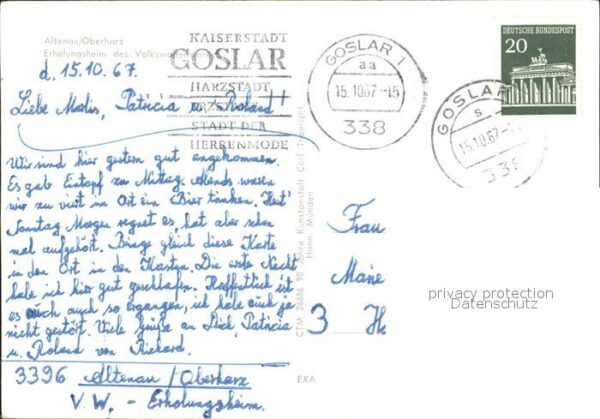 Altenau/Oberharz
Erholungsheim des Volkswagenwerks
d. 15.10.67.
KAISERSTADT
GOSLAR
HARZSTADT
ERZSTADT
STADT DER
HERRENMODE
GOSLAR 1
aa
15.10.67-15
338
20
DEUTSCHE BUNDESPOST
GOSLAR
s
15.10.67
338
Liebe Patricia u. Roland!
Wir sind hier gestern gut angekommen.
Es gab Eintopf zu Mittag. Abends waren
wir zu viert in Ort ein Bier trinken. Heut'
Sonntag Morgen regnet es, hat aber schon
mal aufgehört. Bringe gleich diese Karte
in den Ort in den Kasten. Die erste Nacht
habe ich hier gut geschlafen. Hoffentlich ist
es euch auch so ergangen, ich habe euch ja
nicht gestört. Viele Grüße an Dich, Patricia
u. Roland von Richard.
3396 Altenau/Oberharz
V.W. - Erholungsheim.
CTM 26686 90 Jahre Kunstanstalt Carl Thoericht
Hann. Münden
EXA
Frau
3
privacy protection
Datenschutz